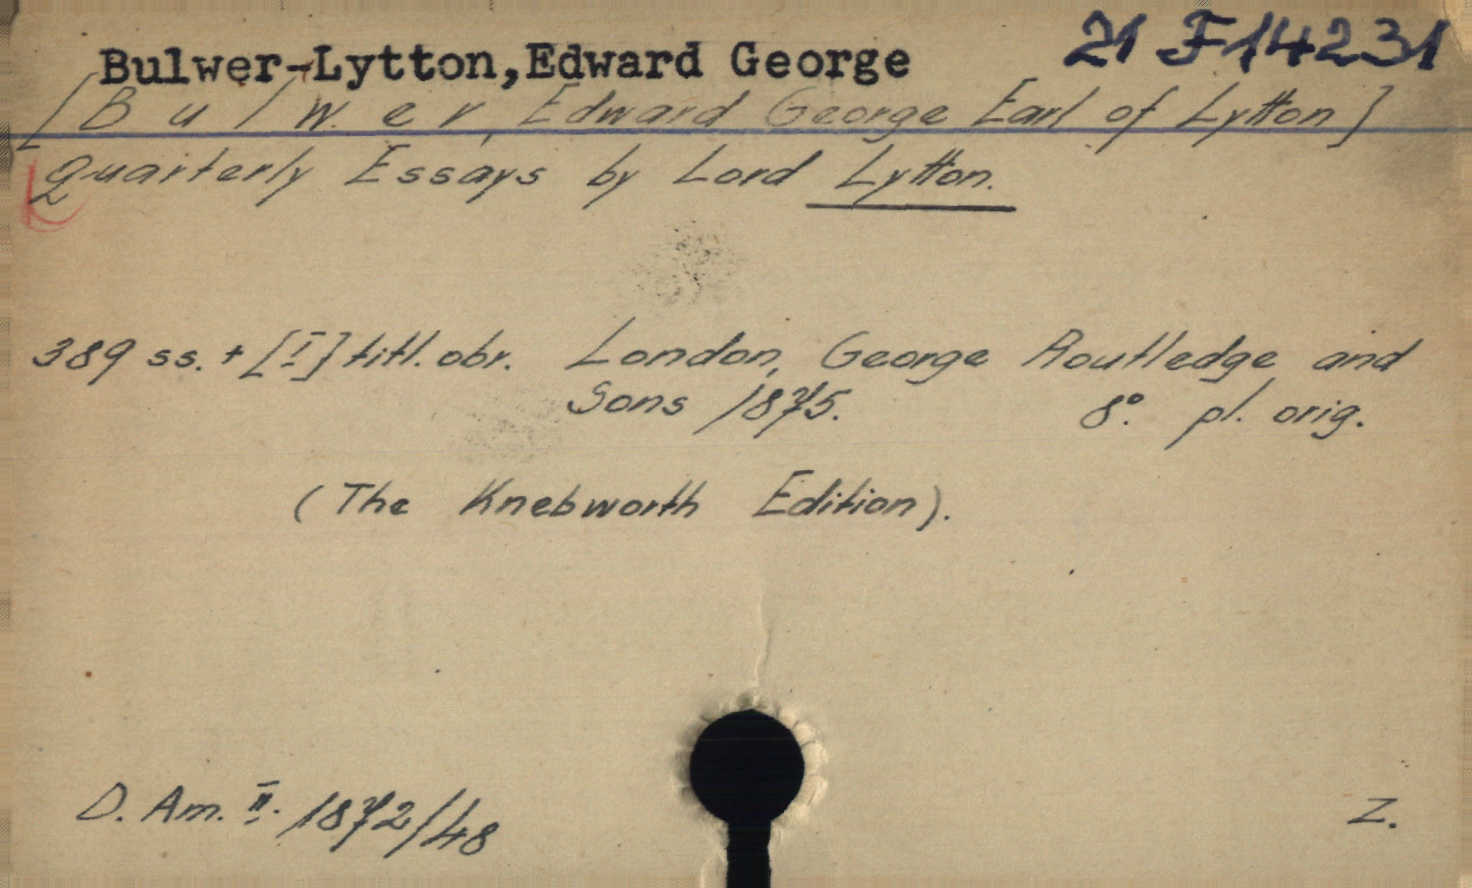 Bulwer-Lytton,Edward George 21 F 14231
[Bulwer, Edward George Earl of Lytton]
Quarterly Essays by Lord Lytton.
389 ss. + [I] titl. obr. London, George Routledge and
Sons 1875. 8°. pl. orig.
(The Knebworth Edition).
D. Am. II. 1872/48 Z.